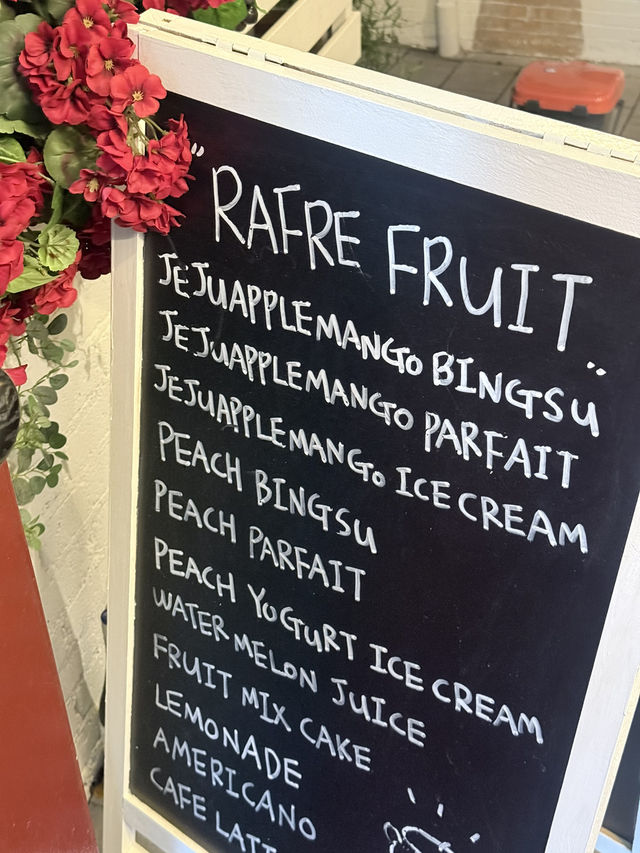 " RAFRE FRUIT "
JEJUAPPLEMANGO BINGSU
JEJUAPPLEMANGO PARFAIT
JEJUAPPLEMANGO ICE CREAM
PEACH BINGSU
PEACH PARFAIT
PEACH YOGURT ICE CREAM
WATER MELON JUICE
FRUIT MIX CAKE
LEMONADE
AMERICANO
CAFE